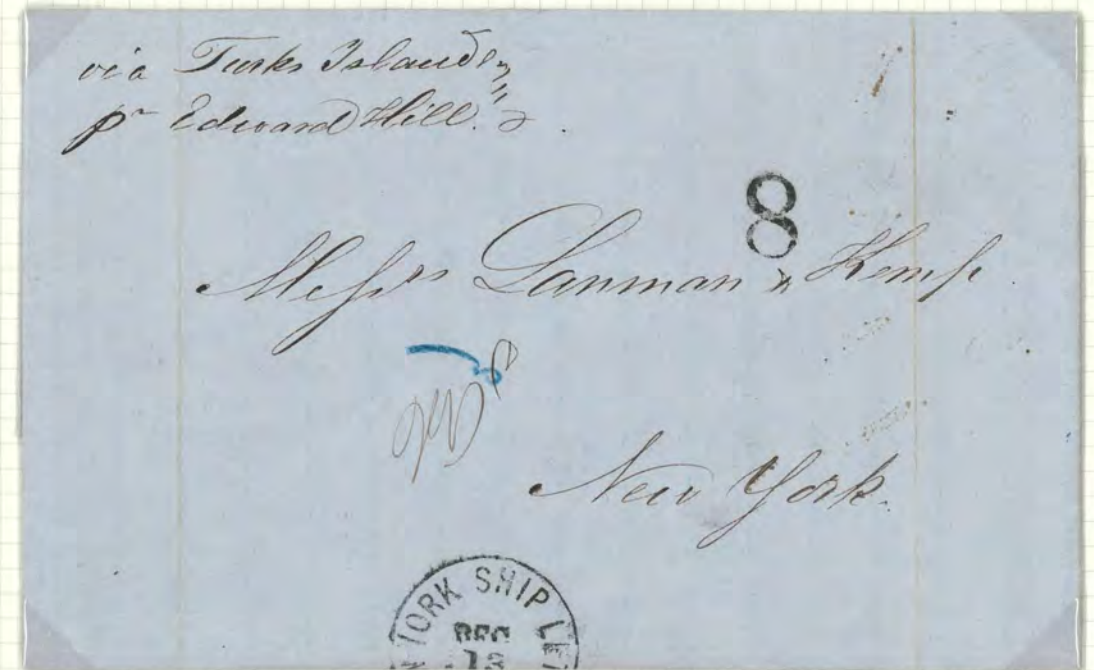 via Turks Islands
pr "Edward Hill."
8
Messrs Lanman & Kemp
New York.
W YORK SHIP LE
DEC
13